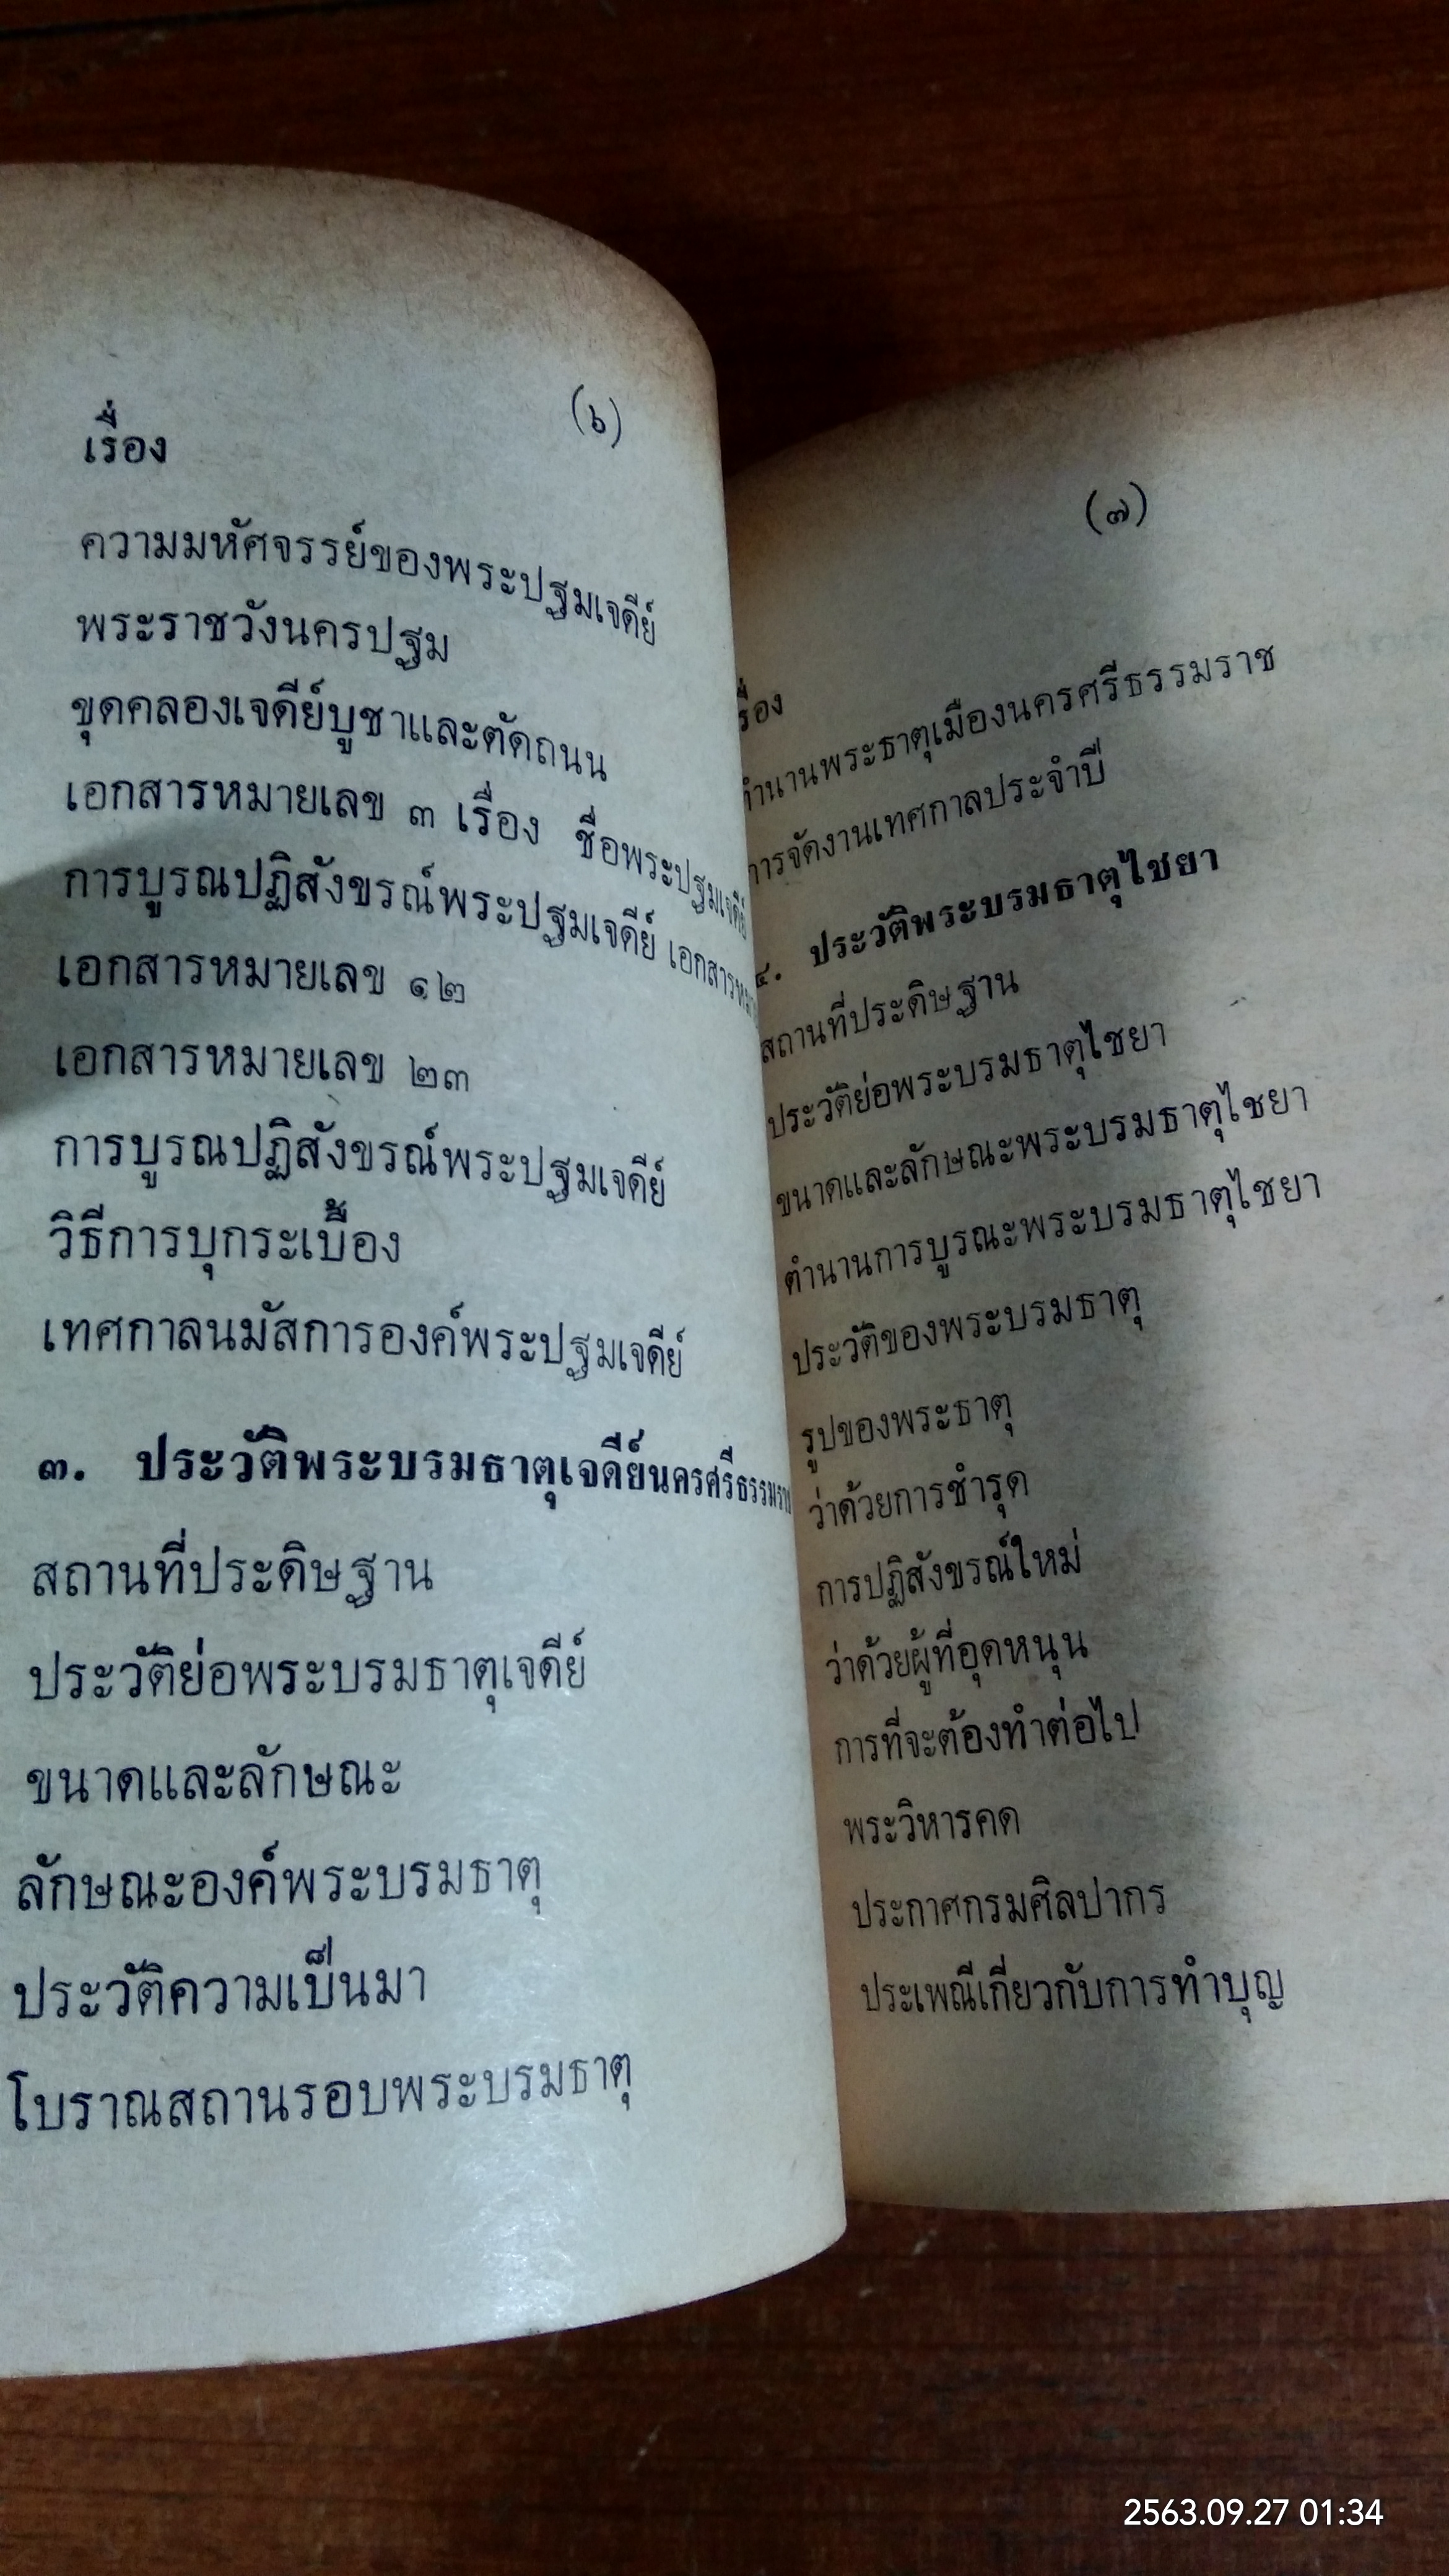 (๖)
เรื่อง
ความมหัศจรรย์ของพระปฐมเจดีย์
พระราชวังนครปฐม
ขุดคลองเจดีย์บูชาและตัดถนน
เอกสารหมายเลข ๓ เรื่อง ชื่อพระปฐมเจดีย์
การบูรณปฏิสังขรณ์พระปฐมเจดีย์
เอกสารหมายเลข ๑๒
เอกสารหมายเลข ๒๓
การบูรณปฏิสังขรณ์พระปฐมเจดีย์
วิธีการบุกระเบื้อง
เทศกาลนมัสการองค์พระปฐมเจดีย์
๓. ประวัติพระบรมธาตุเจดีย์นครศรีธรรมราช
สถานที่ประดิษฐาน
ประวัติย่อพระบรมธาตุเจดีย์
ขนาดและลักษณะ
ลักษณะองค์พระบรมธาตุ
ประวัติความเป็นมา
โบราณสถานรอบพระบรมธาตุ
(๗)
รื่อง
ตำนานพระธาตุเมืองนครศรีธรรมราช
การจัดงานเทศกาลประจำปี
๔. ประวัติพระบรมธาตุไชยา
สถานที่ประดิษฐาน
ประวัติย่อพระบรมธาตุไชยา
ขนาดและลักษณะพระบรมธาตุไชยา
ตำนานการบูรณะพระบรมธาตุไชยา
ประวัติของพระบรมธาตุ
รูปของพระธาตุ
ว่าด้วยการชำรุด
การปฏิสังขรณ์ใหม่
ว่าด้วยผู้ที่อุดหนุน
การที่จะต้องทำต่อไป
พระวิหารคด
ประกาศกรมศิลปากร
ประเพณีเกี่ยวกับการทำบุญ
2563.09.27 01:34